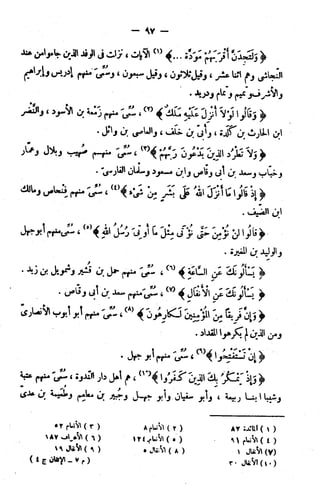 — ٩٧ —
﴿ وَلَتَجِدَنَّ أَقْرَبَهُمْ مَوَدَّةً ...﴾ (١) الآيات ، نزلت فى الوفد الذين جاءوا من عند
النجاشى وهم اثنا عشر ، وقيل ثلاثون ، وقيل سبعون ، وسُمِّىَ منهم إدريس وإبراهيم
والأشرف وتميم وتمام ودريد .
﴿ وَقَالُوا لَوْلَا أُنْزِلَ عَلَيْهِ مَلَكٌ﴾ (٢) ، سُمِّىَ منهم زمعة بن الأسود ، والنَّضْر
ابن الحارث بن كَلَدة ، وأبىّ بن خلف ، والعاصى بن وائل .
﴿ وَلَا تَطْرُدِ الَّذِينَ يَدْعُونَ رَبَّهُمْ ﴾ (٣) ، سُمِّىَ منهم صهيب وبلال وعمار
وخباب وسعد بن أبى وقاص وابن مسعود وسلمان الفارسىّ .
﴿ إِذْ قَالُوا مَا أَنْزَلَ اللهُ عَلَى بَشَرٍ مِنْ شَىْءٍ ﴾ (٤) ، سُمِّىَ منهم فِنْحاص ومالك
ابن الضيف .
﴿ قَالُوا لَنْ نُؤْمِنَ حَتَّى نُؤْتَى مِثْلَ مَا أُوتِىَ رُسُلُ اللهِ ﴾ (٥) ، سُمِّىَ منهم أبو جهل
والوليد بن المغيرة .
﴿ يَسْأَلُونَكَ عَنِ السَّاعَةِ ﴾ (٦) ، سُمِّىَ منهم حمل بن قشير وشمويل بن زيد .
﴿ يَسْأَلُونَكَ عَنِ الْأَنْفَالِ ﴾ (٧) ، سُمِّىَ منهم سعد بن أبى وقاص .
﴿ وَإِنَّ فَرِيقًا مِنَ الْمُؤْمِنِينَ لَكَارِهُونَ ﴾ (٨) ، سُمِّىَ منهم أبو أيوب الأنصارىّ
ومن الذين لم يكرهوا المقداد .
﴿ إِنْ تَسْتَفْتِحُوا ﴾ (٩) ، سُمِّىَ منهم أبو جهل .
﴿ وَإِذْ يَمْكُرُ بِكَ الَّذِينَ كَفَرُوا ﴾ (١٠) ، هم أهل دار الندوة ، سُمِّىَ منهم عتبة
وشيبة ابنا ربيعة ، وأبو سفيان وأبو جهل وجُبير بن مطعم وطُعيمة بن عدىّ
(١) المائدة ٨٢ (٢) الأنعام ٨ (٣) الأنعام ٥٢
(٤) الأنعام ٩١ (٥) الأنعام ١٢٤ (٦) الأعراف ١٨٧
(٧) الأنفال ١ (٨) الأنفال ٥ (٩) الأنفال ١٩
(١٠) الأنفال ٣٠ (م ٧ — الإتقان ج ٤)